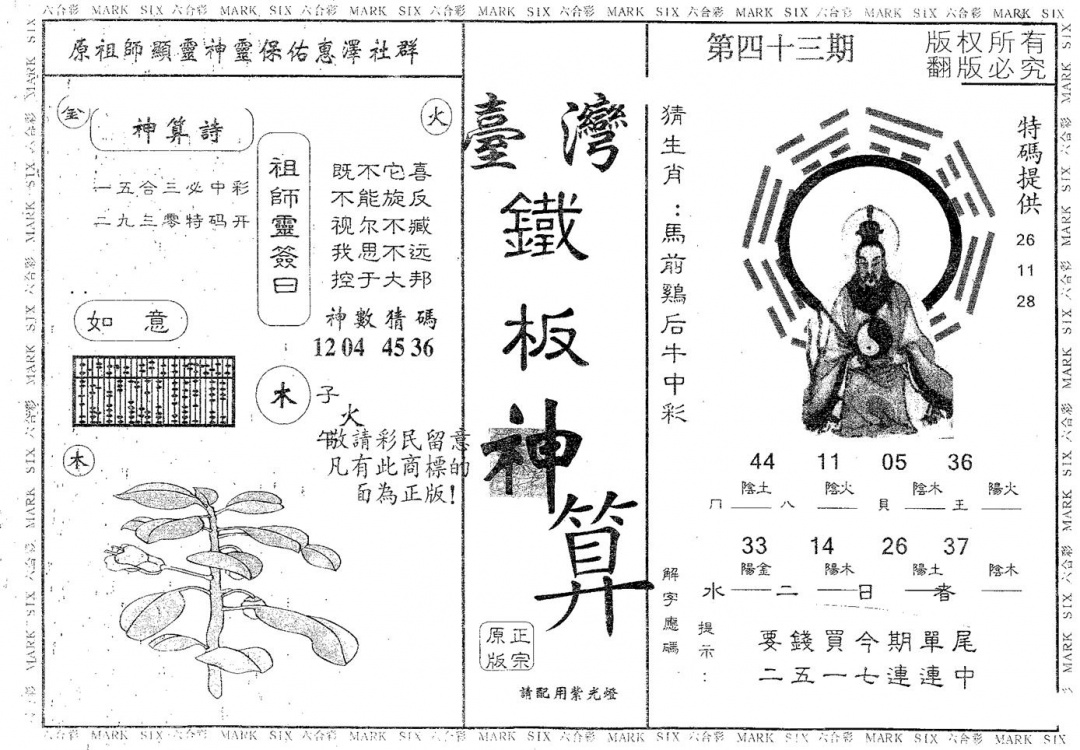 六合彩 MARK SIX 六合彩 MARK SIX 六合彩 MARK SIX 六合彩 MARK SIX 六合彩 MARK SIX 六合彩 MARK SIX 六合彩 MARK SIX 六合彩 MARK SIX
原祖師顯靈神靈保佑惠澤社群
金
神算詩
火
一五合三必中彩
二九三零特码开
祖師靈簽曰
既不它喜
不能旋反
视尔不臧
我思不远
控于大邦
如 意
神數猜碼
:
12 04 45 36
木
子
火
午
敬請彩民留意
凡有此商標的
面為正版!
木
臺灣
鐵板神算
正宗
原版
請配用紫光燈
第四十三期
版权所有
翻版必究
猜生肖:馬前鷄后牛中彩
特碼提供
26
11
28
44 11 05 36
陰土 陰火 陰木 陽火
八 貝 王
33 14 26 37
陽金 陽木 陽土 陰木
水 二 日
解字應碼
提示:
要錢買今期單尾
二五一七連連中
六合彩 MARK SIX 六合彩 MARK SIX 六合彩 MARK SIX 六合彩 MARK SIX 六合彩 MARK SIX 六合彩 MARK SIX 六合彩 MARK SIX 六合彩 MARK SIX